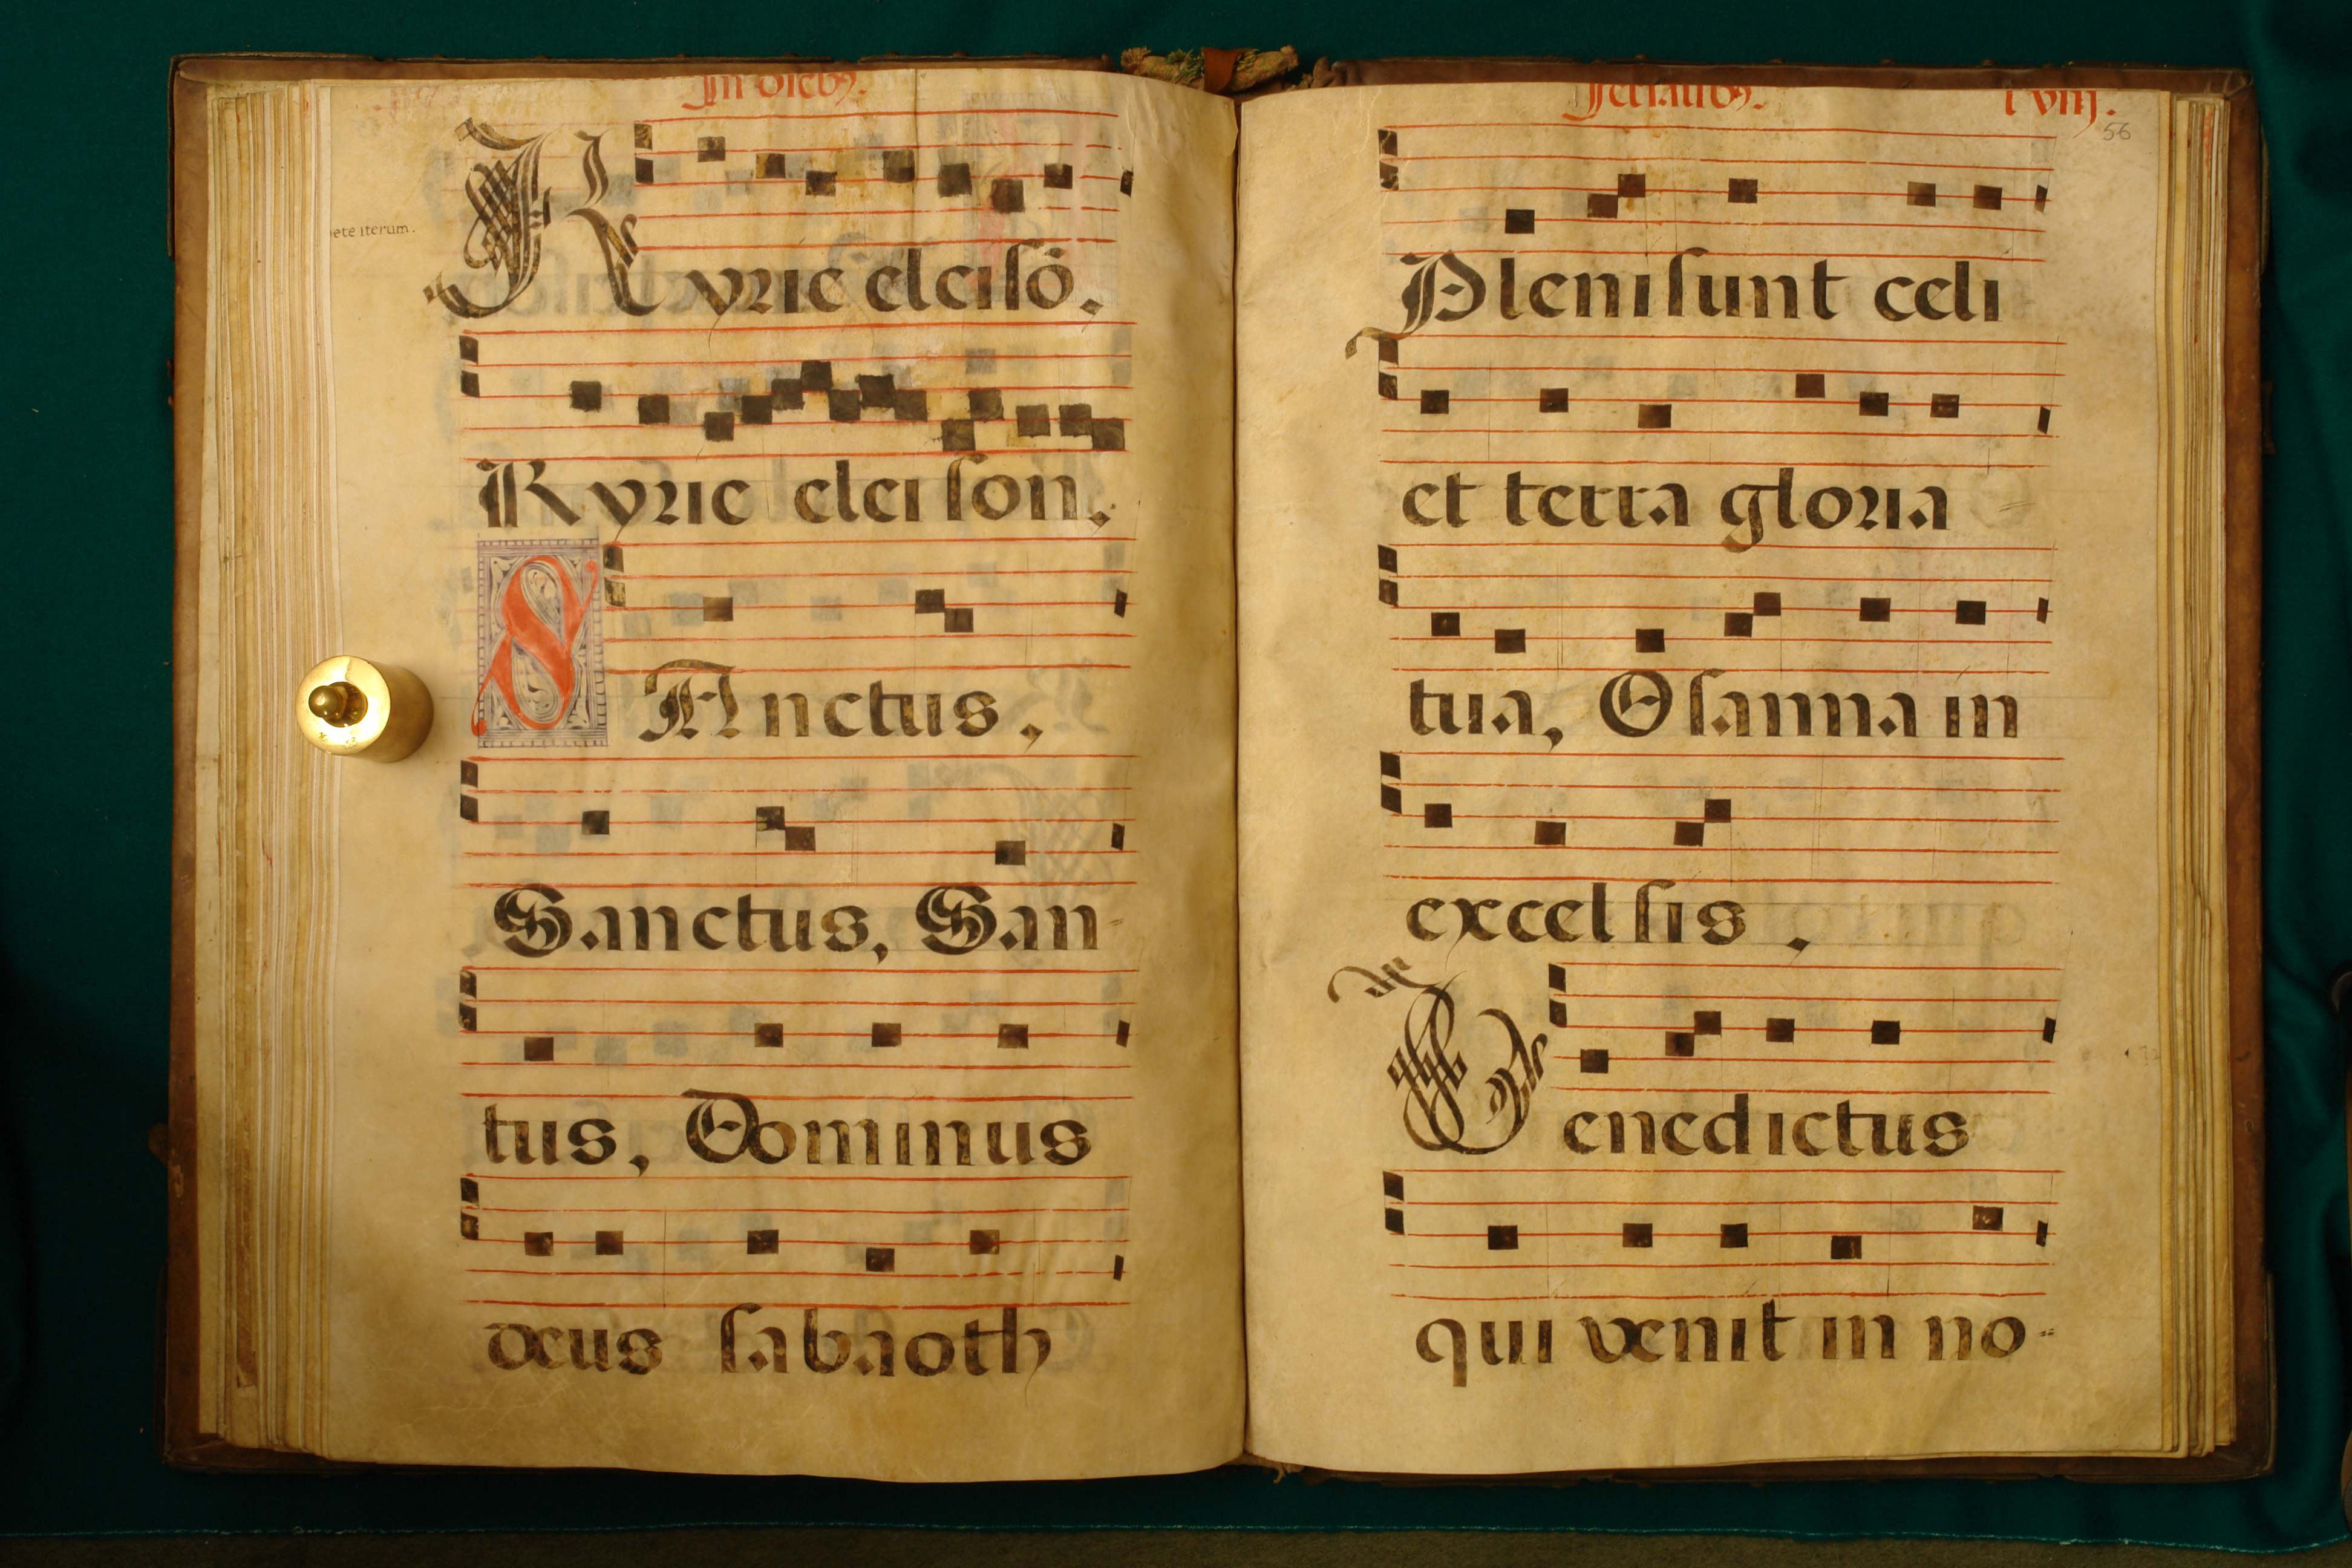 In diebꝰ.
ete iterum.
Kyrie eleisõ.
Kyrie eleison.
SAnctus,
Sanctus, San-
tus, Dominus
deus sabaoth
ferialibꝰ. lviij.
56
Pleni sunt celi
et terra gloria
tua, Osanna in
excelsis.
Benedictus
qui venit in no-